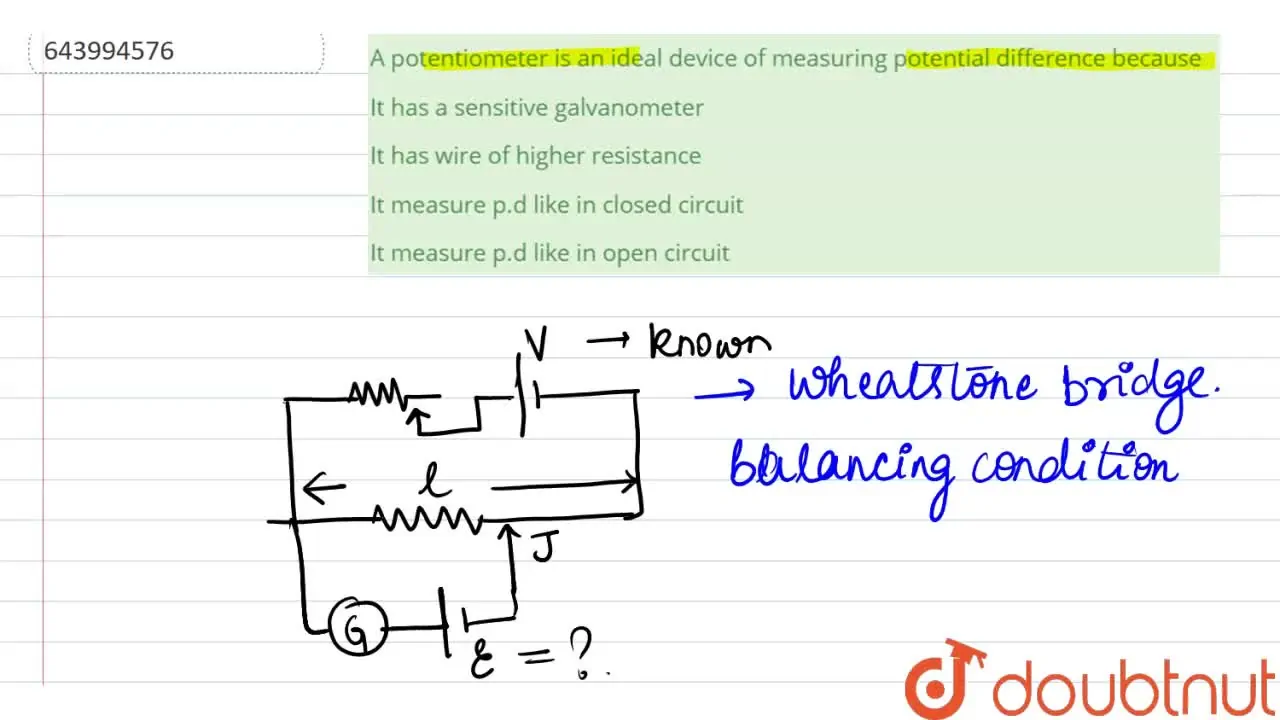 643994576
A potentiometer is an ideal device of measuring potential difference because
It has a sensitive galvanometer
It has wire of higher resistance
It measure p.d like in closed circuit
It measure p.d like in open circuit
V → known
→ wheatstone bridge.
balancing condition
l
J
G
ε = ?
doubtnut